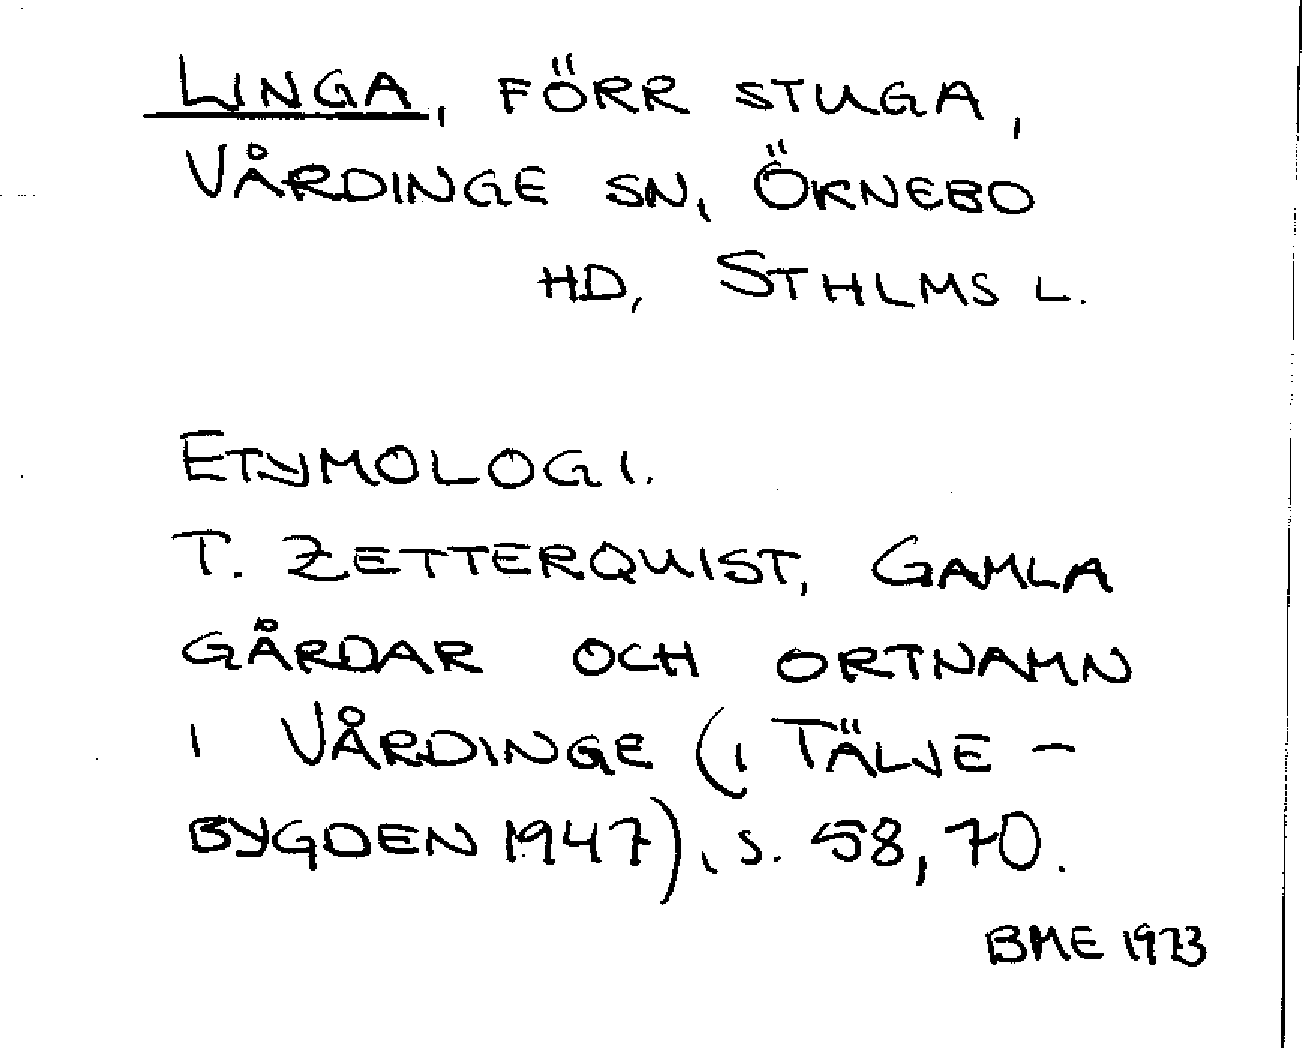 LINGA, FÖRR STUGA,
VÅRDINGE SN, ÖKNEBO
HD, STHLMS L.
ETYMOLOGI.
T. ZETTERQUIST, GAMLA
GÅRDAR OCH ORTNAMN
I VÅRDINGE (I TÄLJE-
BYGDEN 1947), S. 58, 70.
BME 1973